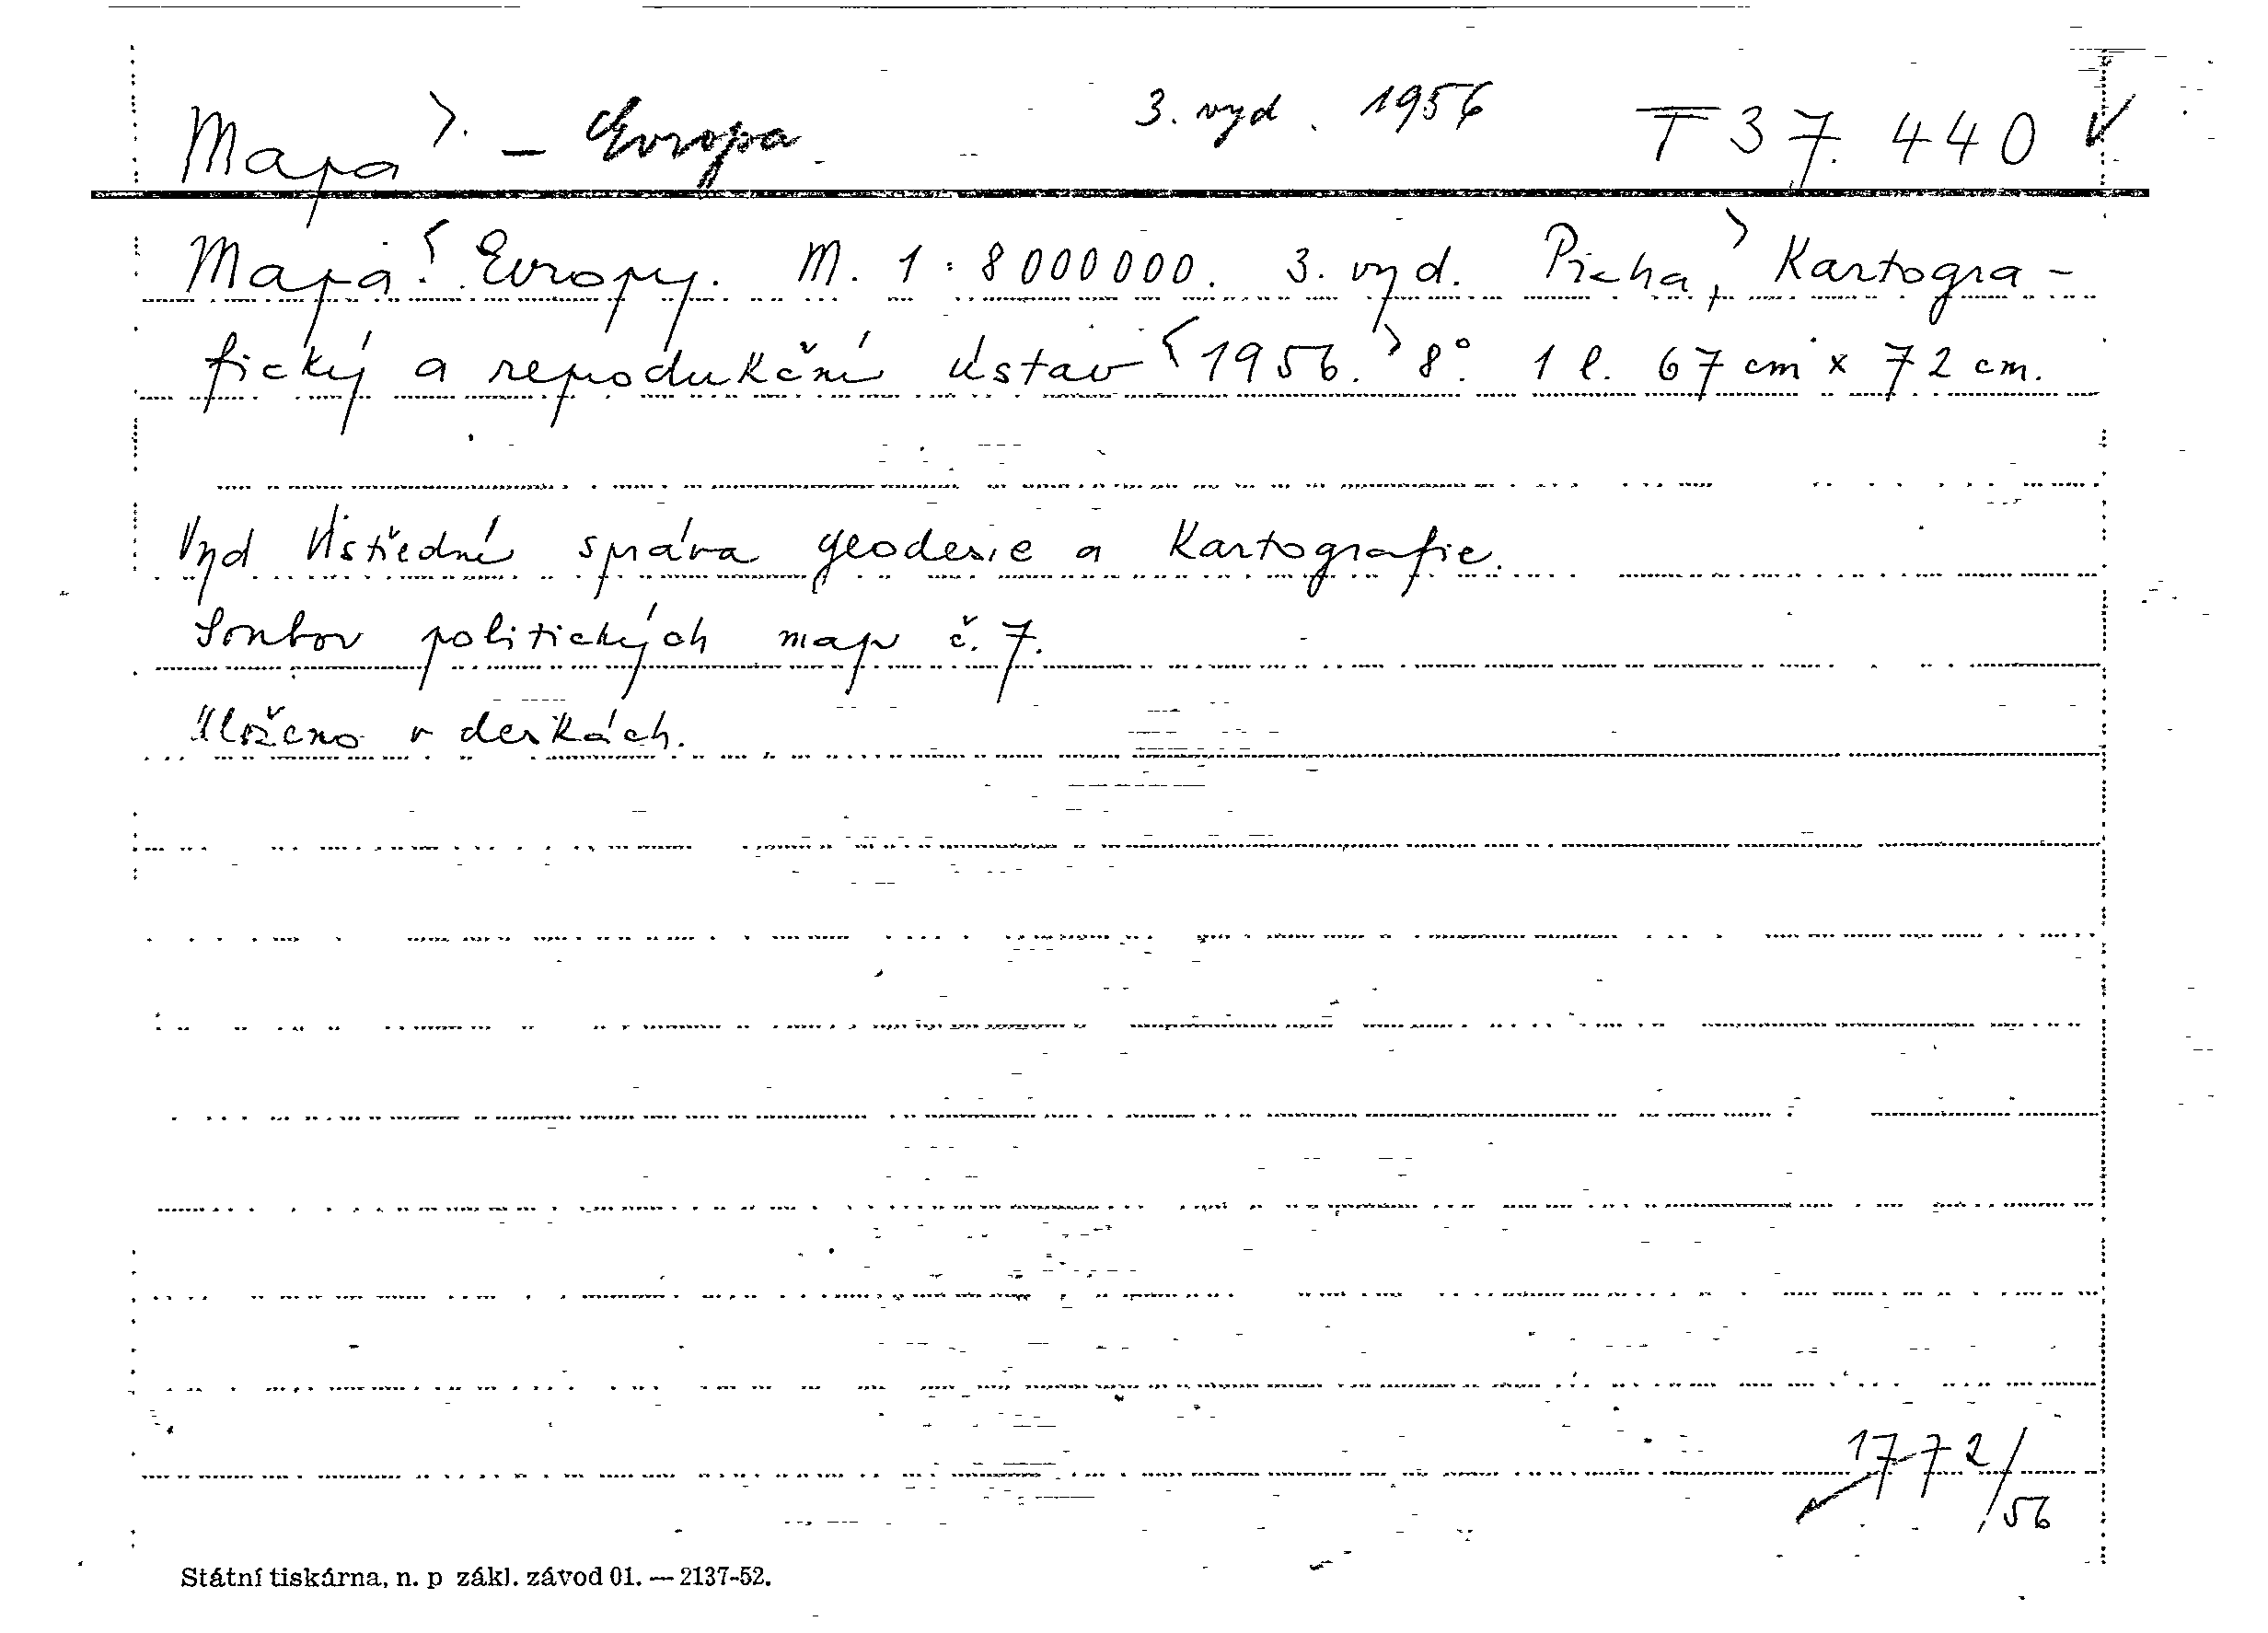 Mapa>. - Evropa 3. vyd. 1956 T 37.440
Mapa < Evropy. M. 1:8000000. 3. vyd. Pícha,> Kartogra-
fický a reprodukční ústav <1956.> 8°. 1 l. 67 cm x 72 cm.
Vyd Ústřední správa geodesie a kartografie.
Soubor politických map č. 7.
Uloženo v deskách.
1772/56
Státní tiskárna, n. p zákl. závod 01. — 2137-52.